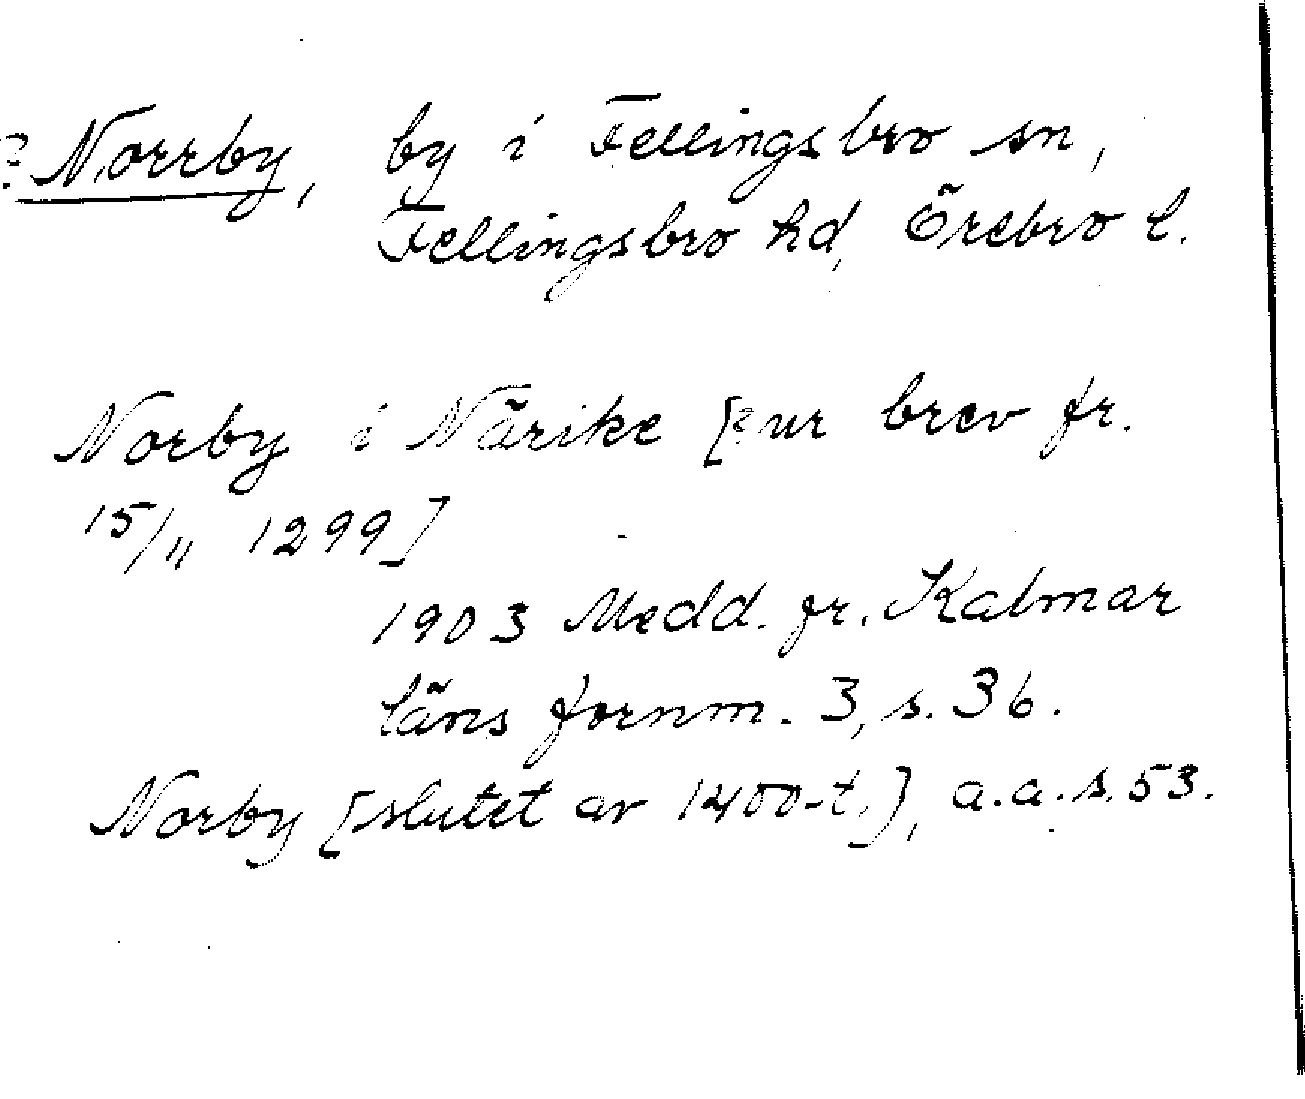 ? Norrby, by i Fellingsbro sn,
Fellingsbro hd, Örebro l.
Norby i Närike [ur brev fr.
15/11 1299]
1903 Medd. fr. Kalmar
läns fornm. 3, s. 36.
Norby [slutet av 1400-t.], a.a.s.53.